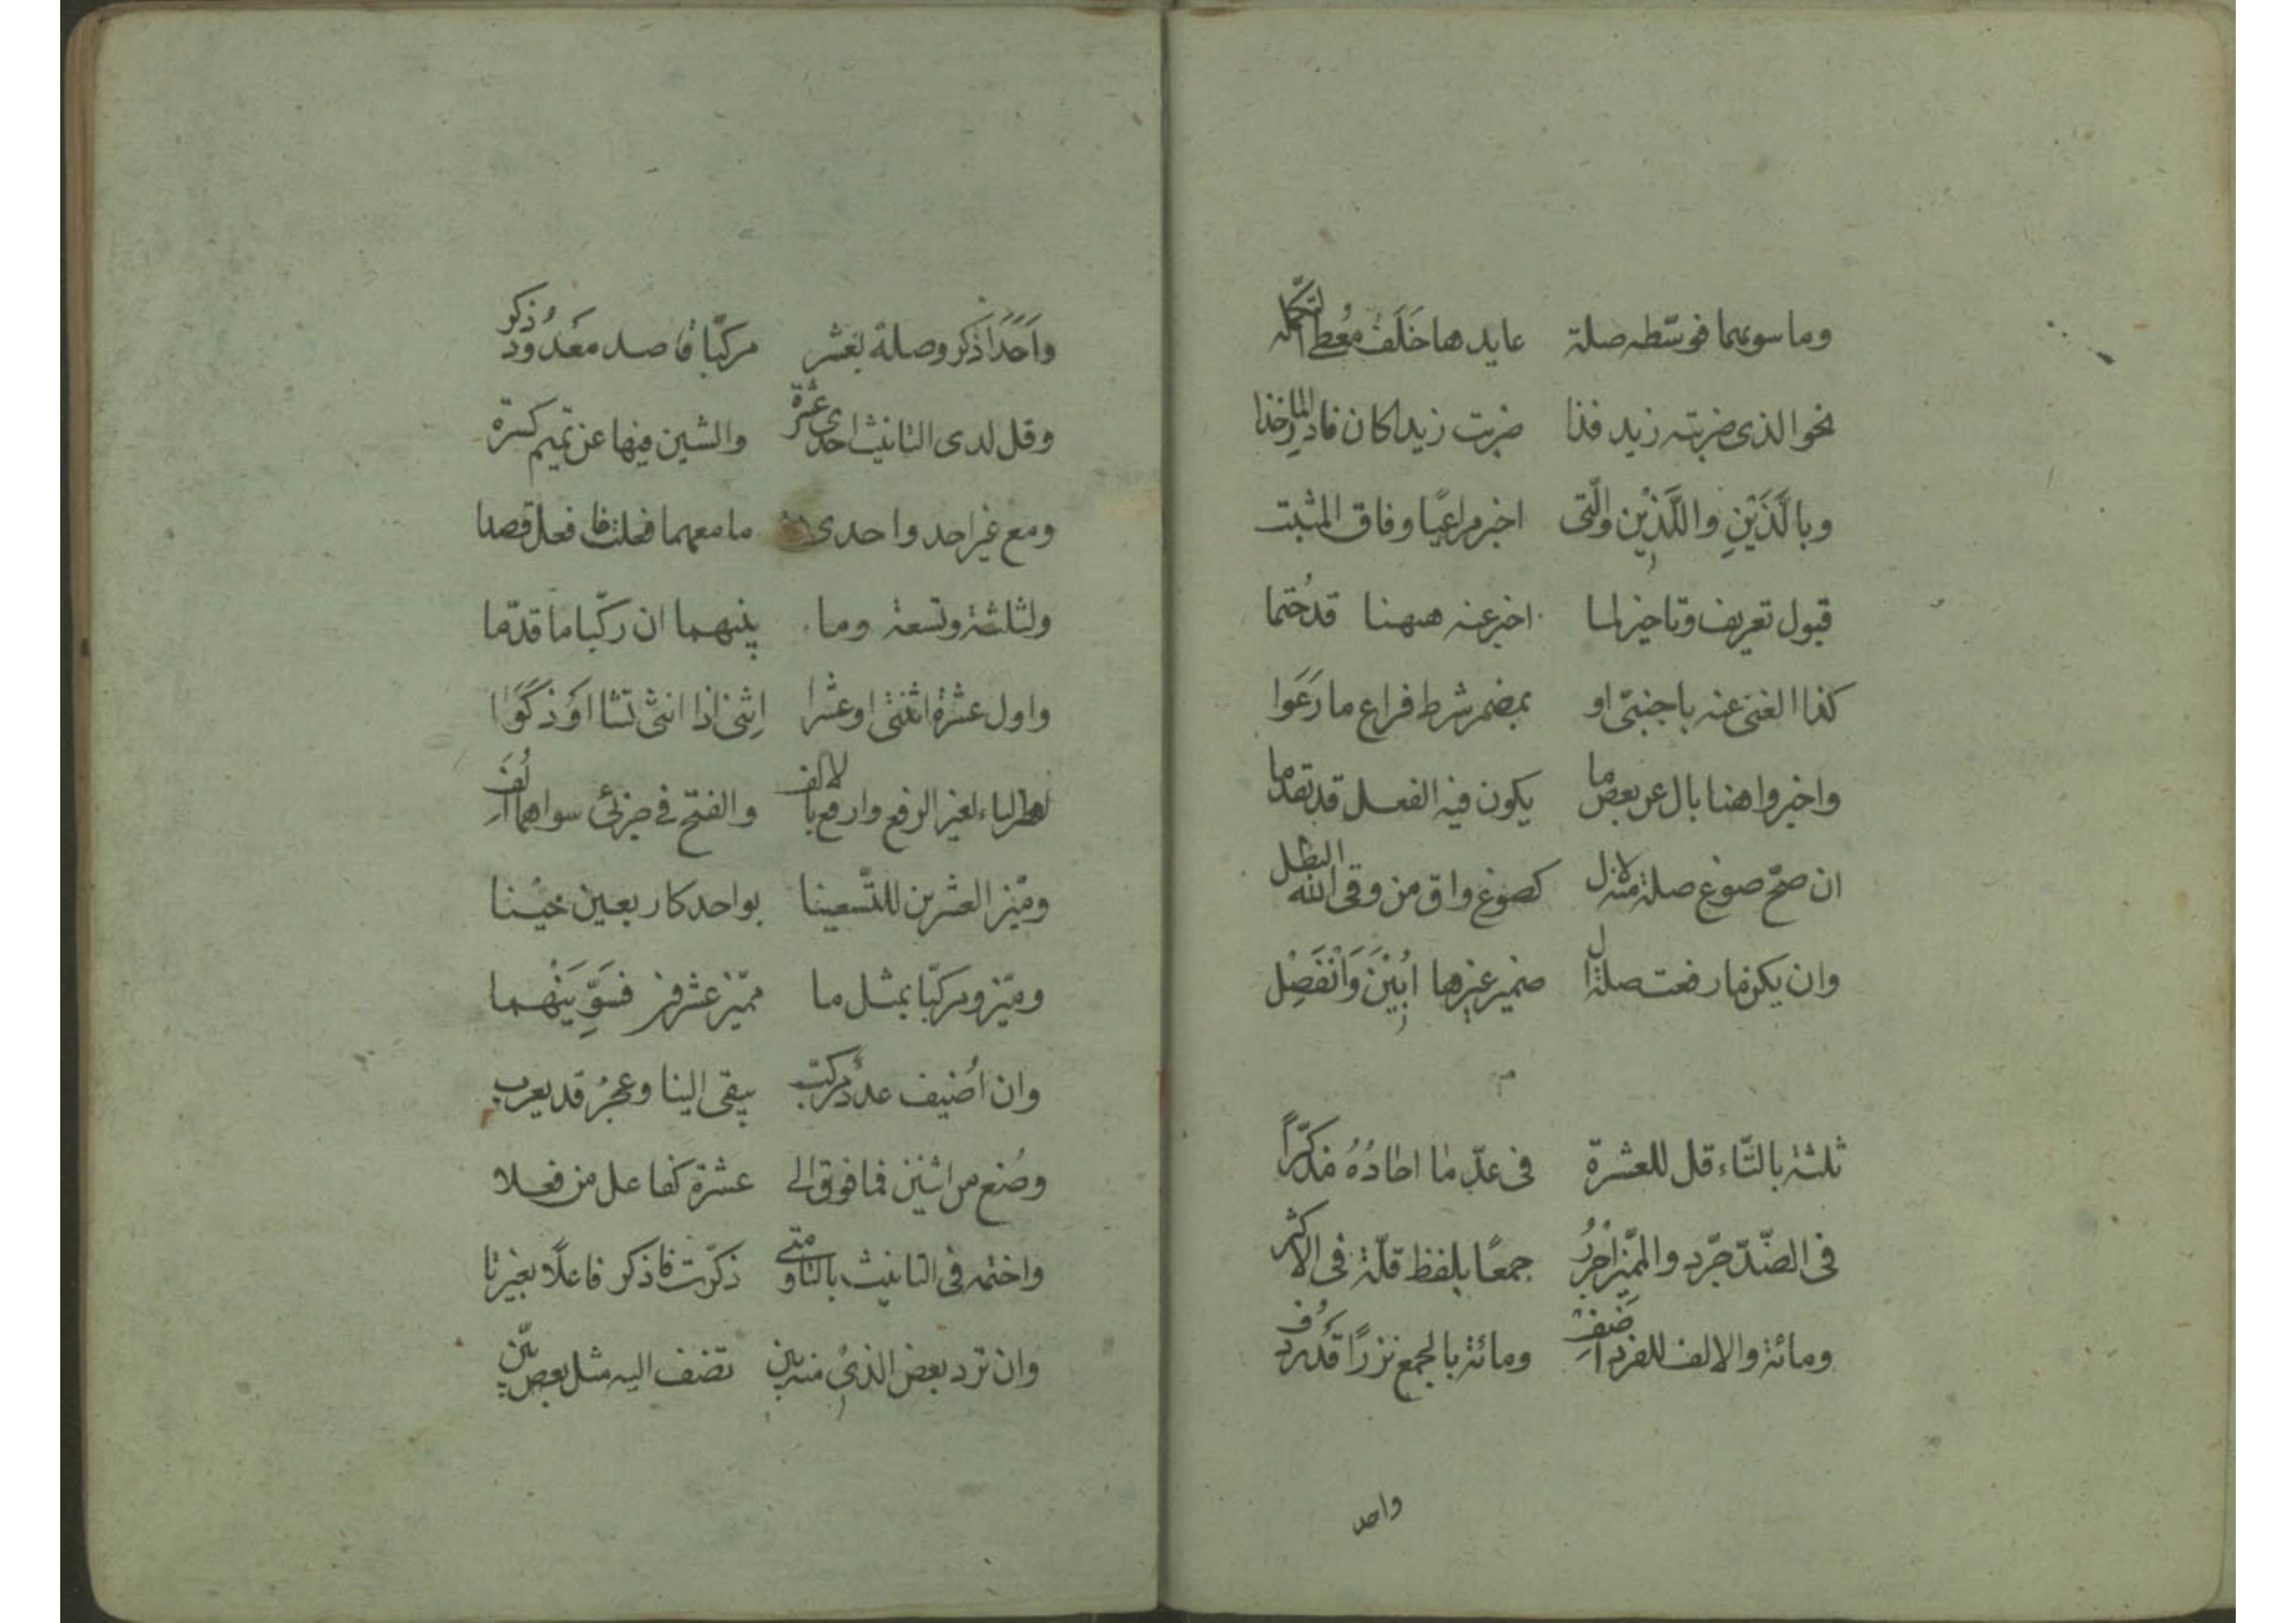 وما سوىهما فوسّطه صلة عايدها خَلَفُ مُعْطِى التكمله
نحو الذى ضربته زيد فذا ضربت زيدا كان فادرِ الماخذا
وبالَّذَيْنِ والَّذِيْن والّتى اخبر مراعيًا وفاق المثبت
قبول تعريف وتاخير لما اخبر عنه ههنا قد حُتما
كذا الغنى عنه باجنبىّ او بمضمر شرط فراع ما رَعَوا
واخبروا هنا بال عن بعض ما يكون فيه الفعل قد تقدما
ان صحّ صوغ صلة منه لال كصوغ واق من وقى الله البطل
وان يكن ما رفعت صلة ال ضمير غيرها ابُيْنَ وَانْفَصِلْ
ثلثة بالتّاء قل للعشرة فى عدّ ما احادُهُ مذكّرًا
فى الضّدّ جرّد والمميّز اجْرُرُ جمعًا بلفظ قلّة فى الاكثر
ومائة والالف للفرد اَضِفْ ومائة بالجمع نزرًا قد رُدِف
واحد
واَحَدًا اذكر وصلة بعشر مركّبًا قاصد معَدُودُ ذكر
وقل لدى التانيث احدى عشرة والشين فيها عن تميم كسرة
ومع غير احد واحدى ما معهما فعلت فافعل قصدا
ولثلثة وتسعة وما بينهما ان ركّبا ما قدّما
واول عشرة اثنتى او عشرا اِثنى اذا انثى تشا اوَ ذَكَرَا
والياء لغير الرفع وارفع بالالف والفتح فى جزئى سواهما اُلِفَ
وميّز العشرين للتّسعينا بواحد كاربعين حيْنا
وميّزو مركّبًا بمثل ما مميّز عشرفز فسَوِّيَنْهما
وان اُضيف عددٌ مركّب يبقى البنا وعجزُ قد يعرب
وصُغ من اثنين فما فوق الى عشرة كفاعل من فعلا
واختمه فى التانيث بالتا ومتى ذكّرت فاذكر فاعلًا بغير تا
وان ترد بعض الذى منه بنى تضف اليه مثل بعض بيّن